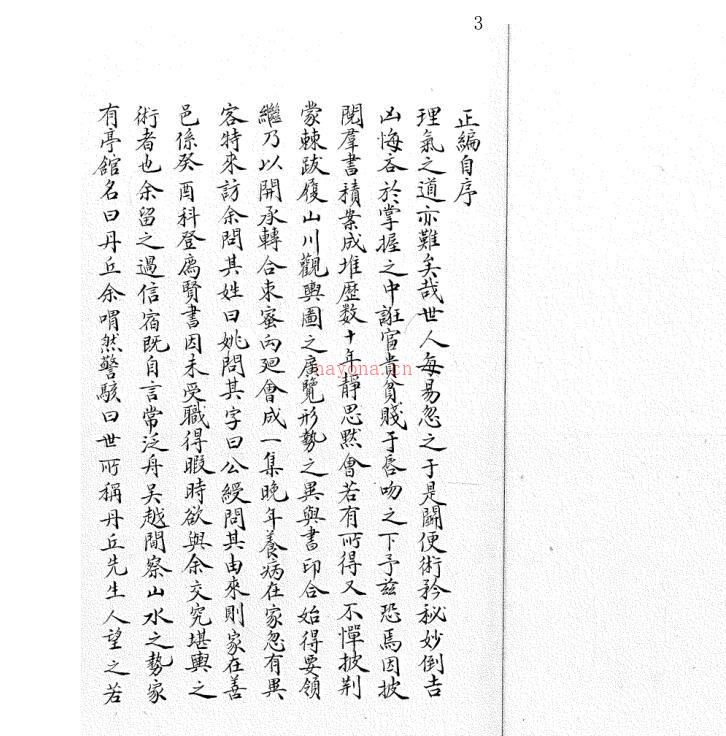 3
正編自序
理氣之道亦難矣哉世人每易忽之于是鬭便術矜秘妙倒吉
凶悔吝於掌握之中誑官貴貧賤于唇吻之下予兹恐焉因披
閱羣書積業成堆歷数十年靜思默會若有所得又不憚披荆
蒙棘跋履山川觀輿圖之廣覽形勢之異與書印合始得要領
繼乃以開承轉合束蜜向廻會成一集晚年養病在家忽有異
客特来訪余問其姓曰姚問其字曰公綬問其由來則家在善
邑係癸酉科登鴈賢書因未受職得暇時欲與余交究堪輿之
術者也余留之過信宿既自言常泛舟吴越間察山水之勢家
有亭館名曰丹丘余喟然警駭曰世所稱丹丘先生人望之若
nayona.cn